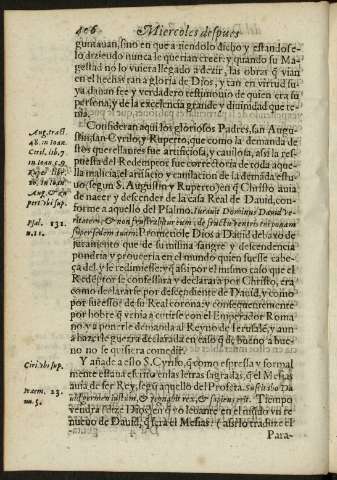 406 Miercoles despues
guntauan, sino en que aviendolo dicho y estandose-
lo diziendo nunca le querian creer: y quando su Ma-
gestad no lo vuiera llegado a dezir, las obras q̃ vian
en el hechas eran a gloria de Dios, y tan en virtud su-
ya dauan fee y verdadero testimonio de quien era su
persona, y de la excelencia grande y diuinidad que te-
nia.
Consideran aqui los gloriosos Padres, san Augu-
stin, san Cyrilo, y Ruperto, que como la demanda de
estos querellantes fue artificiosa, y caulosa, assi la res-
puesta del Redemptor fue correctoria de toda aque-
lla malicia, el artificio y caulacion de la demãda estu-
uo, segun S. Augustin y Ruperto, en q̃ Christo auia
de nacer y descender de la casa Real de Dauid, con-
forme a aquello del Psalmo. Iurauit Dominus Dauid ve-
ritatem, & non frustrabitur eum, de fructu ventris tui ponam
super sedem tuam. Prometiole Dios a Dauid debaxo de
juramento que de su misma sangre y descendencia
pondria y proueeria en el mundo quien fuesse cabe-
ça del y le redimiesse: y q̃ assi por el mismo caso que el
Redẽptor se confessara y declarara por Christo, era
como declararse por descẽdiente de Dauid, y como
por sucessor de su Real corona: y consequentemente
por hobre q̃ venia a eximirse con el Emperador Roma
no y a ponerle demanda al Reyno de Ierusalẽ, y aun
a hazerle guerra declarada en caso q̃ de bueno a bue-
no no se quisiera comedir.
Y añade a esto S. Cyrilo, q̃ como expressa y formal
mente estaua escrito en las letras sagradas, q̃ el Mesias
auia de ser Rey, segũ aquello del Profeta. Suscitabo Da
uid germen iustum, & regnabit rex, & sapiens erit. Tiempo
vendra (dize Dios) en q̃ yo leuante en el mũdo vn re
nueuo de Dauid, q̃ sera el Mesias: (assi lo traduze el
Para-
Aug. tract.
48. in Ioan.
Ciril. lib. 7.
in Ioan. c. 9.
Rupe. libr.
10. in Ioan
Aug. & Ru
pert vbi sup.
Psal. 131.
n. 11.
Ciri. vbi sup.
Ierem. 23.
nu. 5.